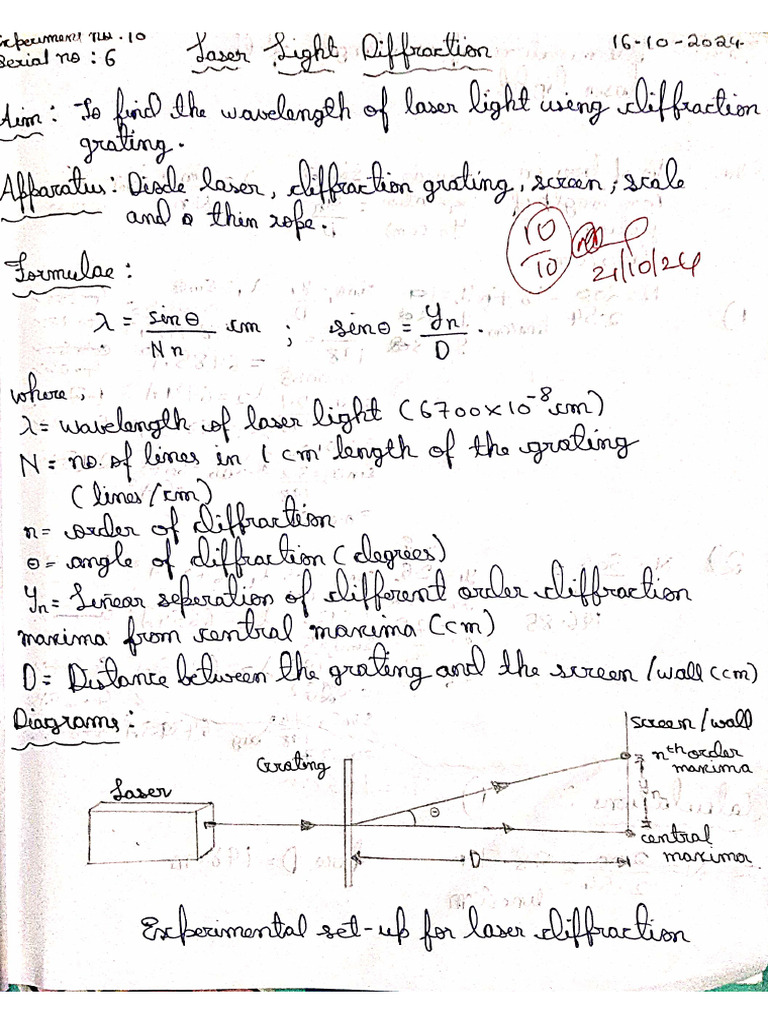 Experiment no. 10
Serial no : 6
Laser Light Diffraction
16-10-2024
Aim : To find the wavelength of laser light using diffraction
grating.
Apparatus : Diode laser, diffraction grating, screen, scale
and a thin rope.
10/10
21/10/24
Formulae :
λ = sinθ / Nn cm ; sinθ = Yn / D .
where,
λ = wavelength of laser light (6700×10⁻⁸cm)
N = no. of lines in 1 cm length of the grating
(lines/cm)
n = order of diffraction
θ = angle of diffraction (degrees)
Yn = Linear seperation of different order diffraction
maxima from central maxima (cm)
D = Distance between the grating and the screen /wall (cm)
Diagrams :
Screen/wall
Grating
nth order
maxima
Laser
Yn
θ
central
maxima
D
Experimental set-up for laser diffraction